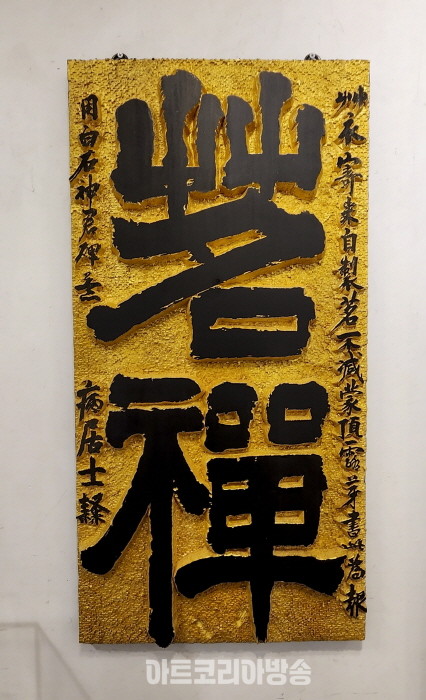 艸衣寄來自製茗不減蒙頂露芽書此爲報
茗禪
用白石神君碑意 病居士隸
아트코리아방송